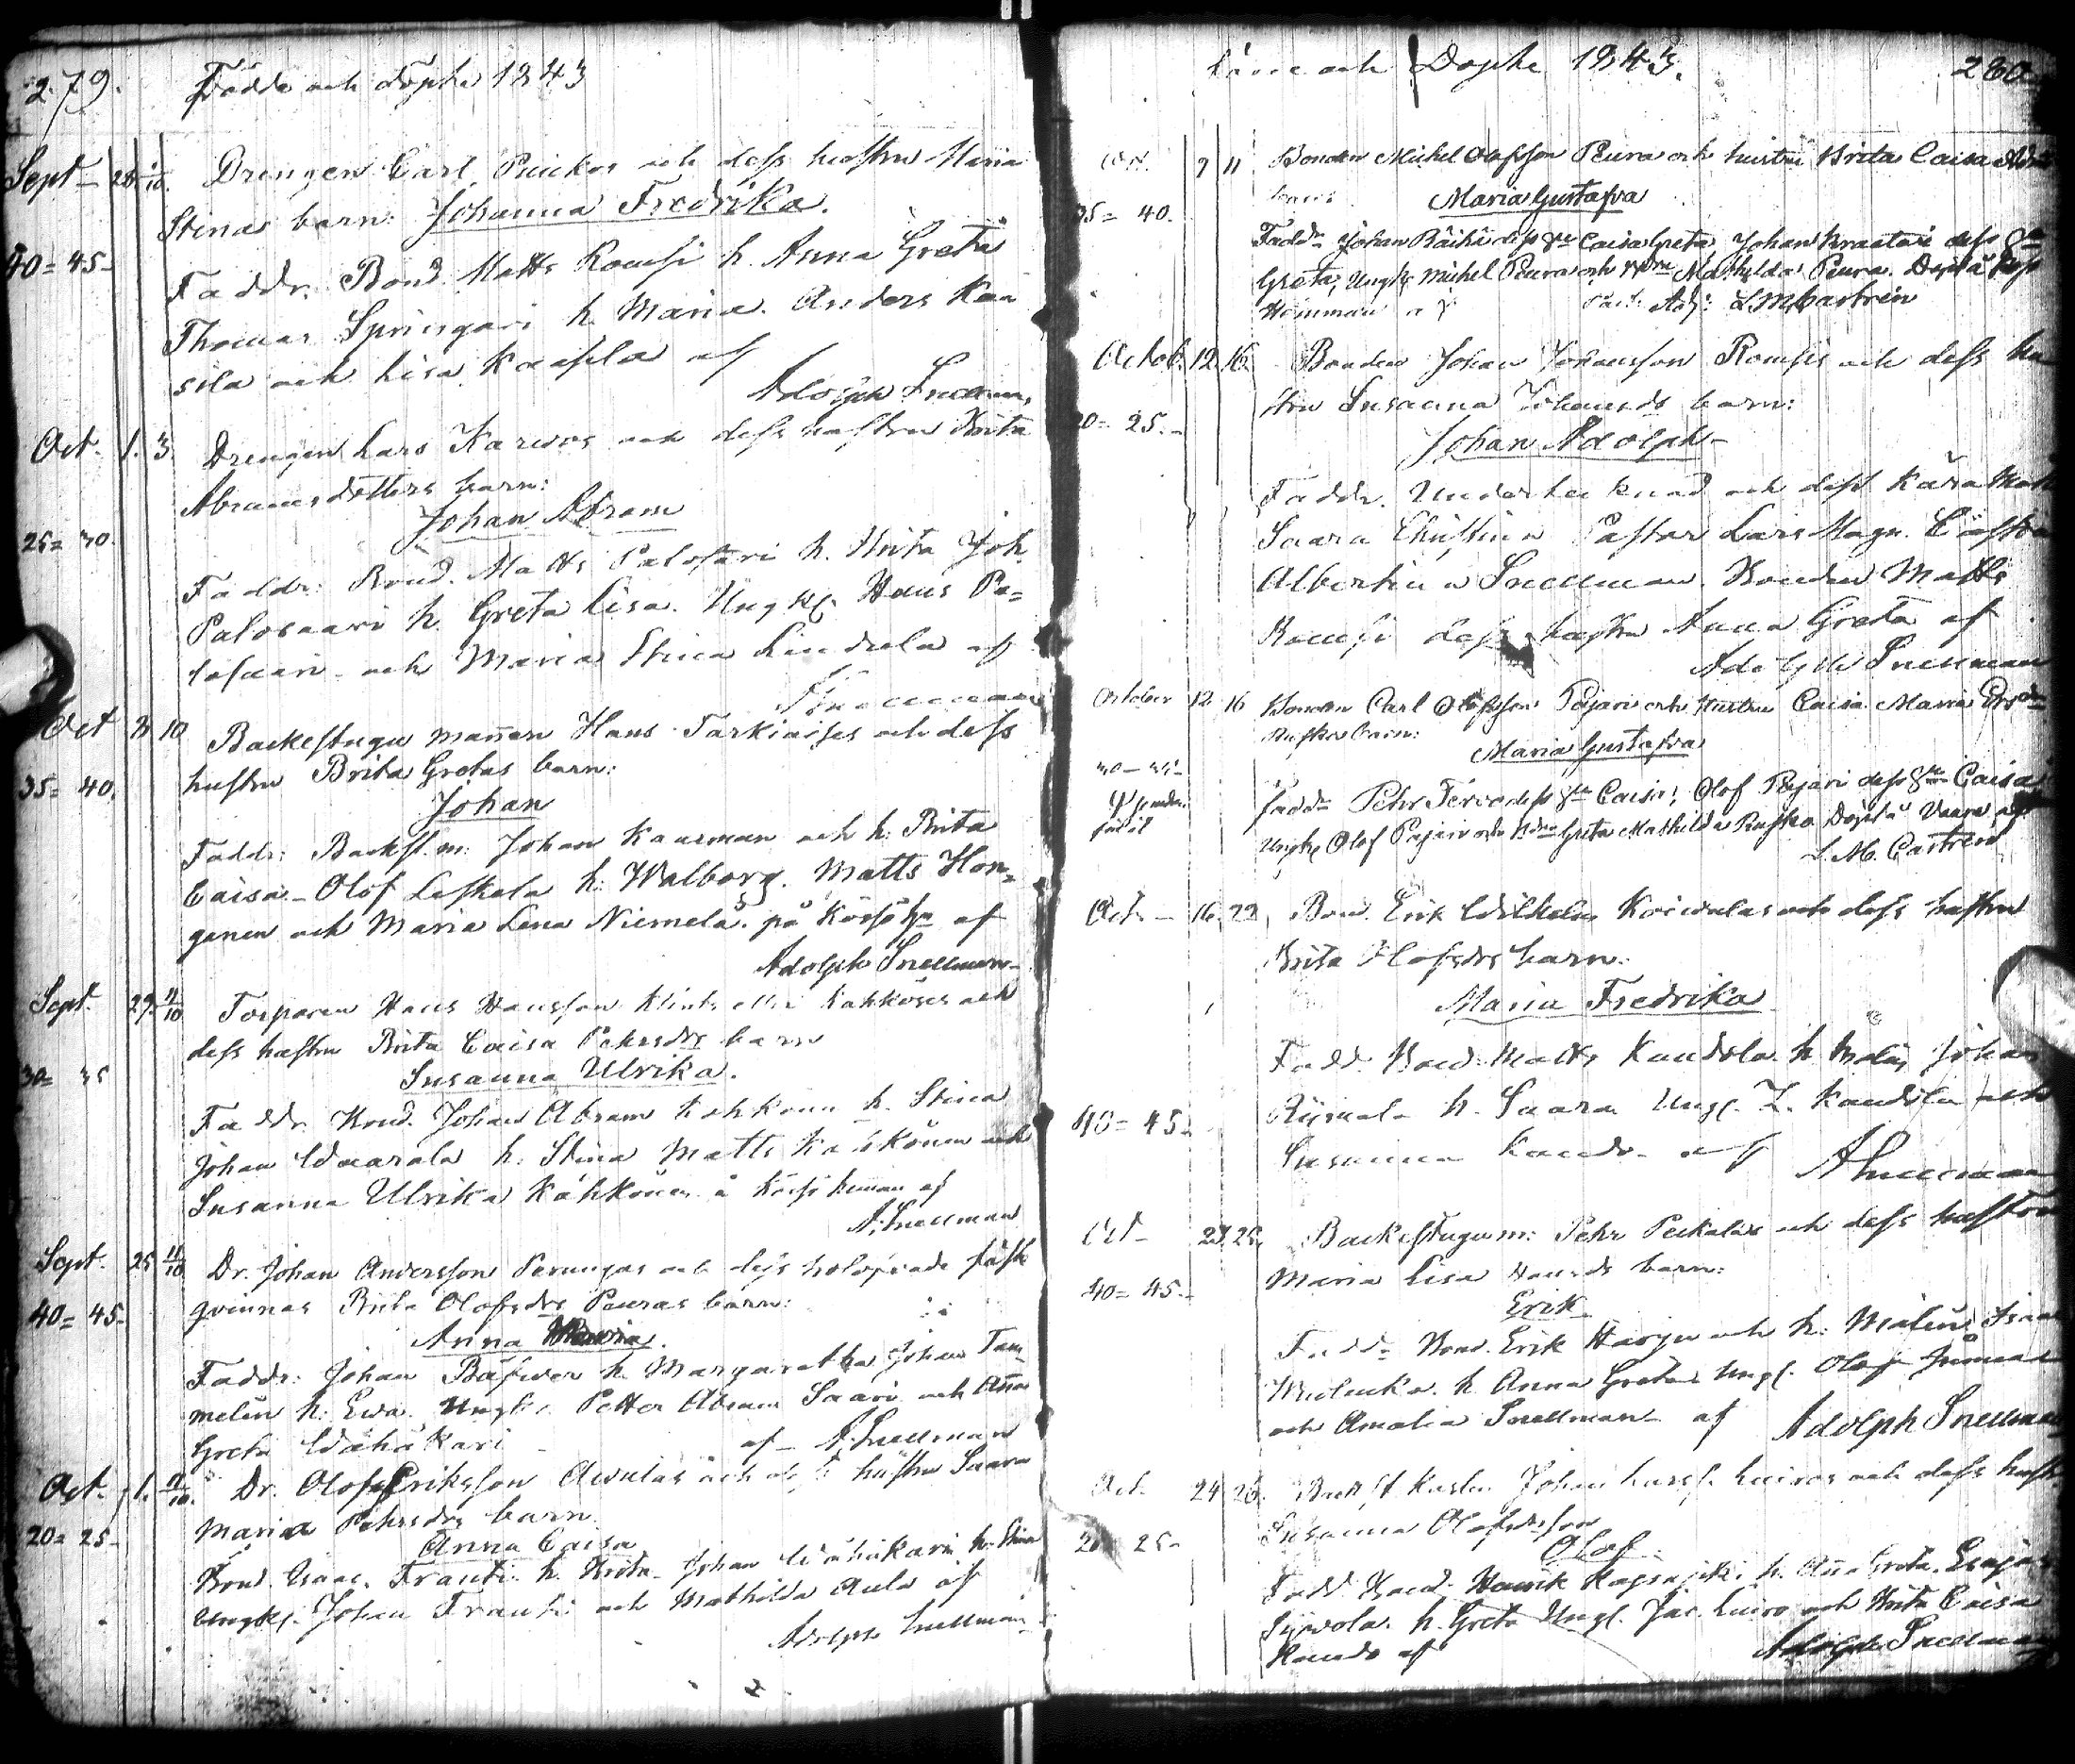 279. Födde och Döpte 1843
Sept 28 1/10. Drengen Carl Puickos och dess hustru Maria
Stinas barn: Johanna Fredrika.
40=45- Faddr. Bond. Matts Romsi h. Anna Greta
Thomas Springari h. Maria. Anders Kau
sila och Lisa Kaapla af
Adolph Snellman
Oct. 1. 3 Drengen Lars Karvos och dess hustru Brita
Abramsdotters barn:
Johan Abram
25=30. Faddr: Bond. Matts Palosari h. Brita Joh.
Palosaari h. Greta Lisa. Ungk. Hans Pa=
losaari och Maria Stina Lindula af
Snellman
Oct 3 10 Backestugu mannen Hans Tarkiaises och dess
hustru Brita Gretas barn:
35=40. Johan
Faddr: Backst.m: Johan Kauman och h. Brita
Caisa - Olof Leskela h: Walborg. Matts Hon=
ganen och Maria Lena Niemelä. på af
Adolph Snellman
Sept. 29. 11/10 Torparen Hans Hansson Klints eller Kahköses och
dess hustru Brita Caisa Pehrsdrs barn
30=35 Susanna Ulrika.
Faddr. Bond. Johan Abram Kahkonen h. Stina
Johan Waarala h. Stina Matts Kahkönen och
Susanna Ulrika Kähkönen å af
A. Snellman
Sept. 25 11/10 Dr. Johan Andersson Perungas och dess
40=45- qvinnas Brita Olofsdrs Peuras barn:
Anna Maria.
Faddr: Johan Bäfver h. Margaretha Johan Tam
melin h: Ewa. Ungk. Petter Abram Saari och Anna
Greta Wähäkari af A. Snellman
Oct. 1. 11/10. Dr. Olof Eriksson Awulas och dess hustru Saara
Maria Pehrsdrs barn.
20=25- Anna Caisa
Bond. Isaac. Frantti h. Brita - Johan Wähäkari h. Stina
Ungk. Johan Frantti och Mathilda Aula af
Adolph Snellman
Födde och Döpte 1843. 280
Oct. 9 11 Bonden Michel Olofsson Peura och hustru Brita Caisa
barn: Maria Gustafva
35=40. Faddr Johan Räihä dess Caisa Greta, Johan Kraatari dess
Greta, Ungk. Michel Peura och Mathilda Peura. Döpt å
Heinman af Past: Adj: L M Castrén
Octob. 12. 16. Bonden Johan Johansson Romsis och dess hu
stru Susanna Johansds barn:
20=25.- Johan Adolph
Faddr. och dess Kära
Saara Christina Pastor Lars Magn. Castrén
Albertina Snellman. Bonden Matts
Romsi dess hustru Anna Greta af
Adolph Snellman
October 12 16 Bonden Carl Olofsson Pajari och Hustru Caisa Maria
Ruskos barn: Maria Gustafva
Faddr Pehr Tervo dess Caisa, Olof Pajari dess Caisa
Ungk Olof Pajari och Greta Mathilda Rusko. Döpt å Vaara af
L. M. Castrén
Oct. 16. 22. Bond. Erik Wilhelm Koiwulas och dess hustru
Brita Olofsdrs barn.
Maria Fredrika
Fadd. Bond. Matts Kandola h. Malin Johan
40=45- Riimala h. Saara Ungk. Z. Kandola och
Susanna af A Snellman
Oct - 23. 25. Backestugum: Pehr Peckalas och dess hustru
40=45- Maria Lisa Hansds barn:
Erik
Faddr Bond. Erik Harju och h: Malin, Isaac
h. Anna Greta Ungk. Olof
och Amalia Snellman af Adolph Snellman
Oct. 24 26. Backst. karlen Johan Larss. Luiros och dess hustr.
20=25- Susanna Olofsdrs son
Olof
Fadd. Bond. Henrik h. Anna Greta. Esajas
Syvola. h. Greta Ungk. Jac. Luiro och Brita Caisa
af Adolph Snellman